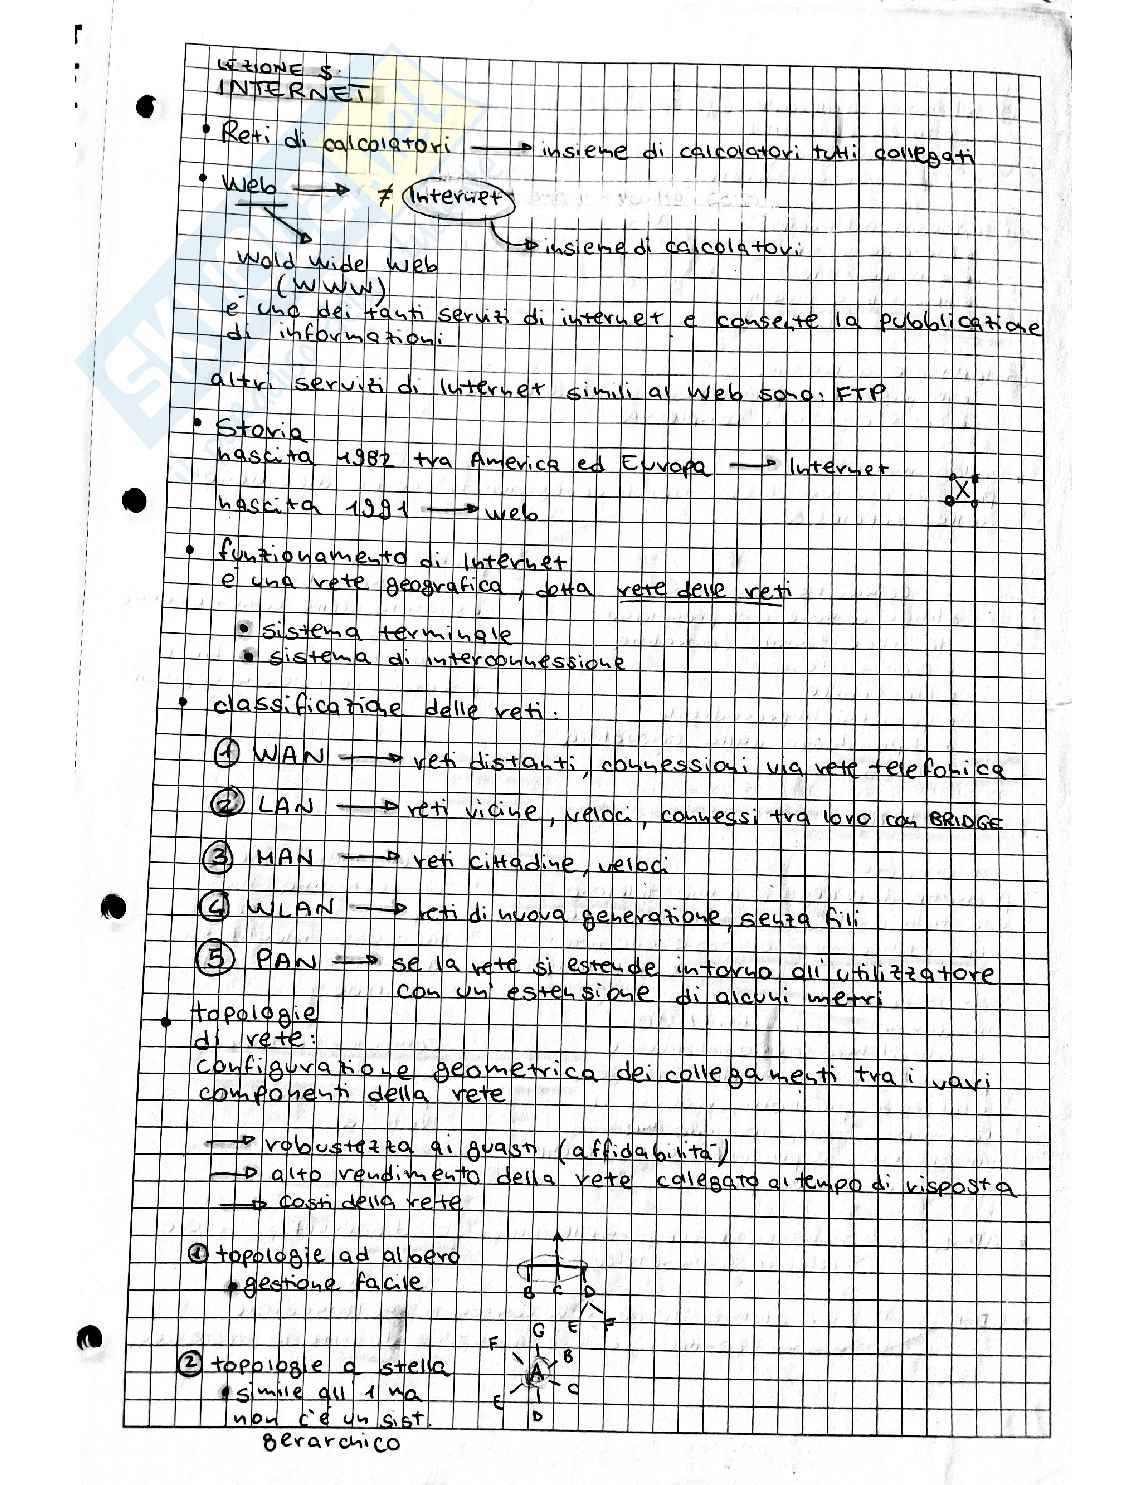 LEZIONE 5:
INTERNET
• Reti di calcolatori → insieme di calcolatori tutti collegati
• Web → ≠ Internet
→ insieme di calcolatori
Wold Wide Web
(WWW)
è uno dei tanti servizi di internet e consente la pubblicazione
di informazioni
altri servizi di Internet simili al Web sono: FTP
• Storia
nascita 1982 tra America ed Europa → Internet
nascita 1991 → web
• funzionamento di Internet
è una rete geografica, detta rete delle reti
• sistema terminale
• sistema di interconnessione
• classificazione delle reti:
① WAN → reti distanti, connessioni via rete telefonica
② LAN → reti vicine, veloci, connessi tra loro con BRIDGE
③ MAN → reti cittadine, veloci
④ WLAN → reti di nuova generazione, senza fili
⑤ PAN → se la rete si estende intorno all'utilizzatore
con un'estensione di alcuni metri
• topologie
di rete:
configurazione geometrica dei collegamenti tra i vari
componenti della rete
→ robustezza ai guasti (affidabilità)
→ alto rendimento della rete calegato al tempo di risposta
→ costi della rete
① topologie ad albero
• gestione facile
B C D
E F
② topologie a stella
• simile all'1 ma
non c'è un sist.
gerarchico
G
F B
A
E C
D